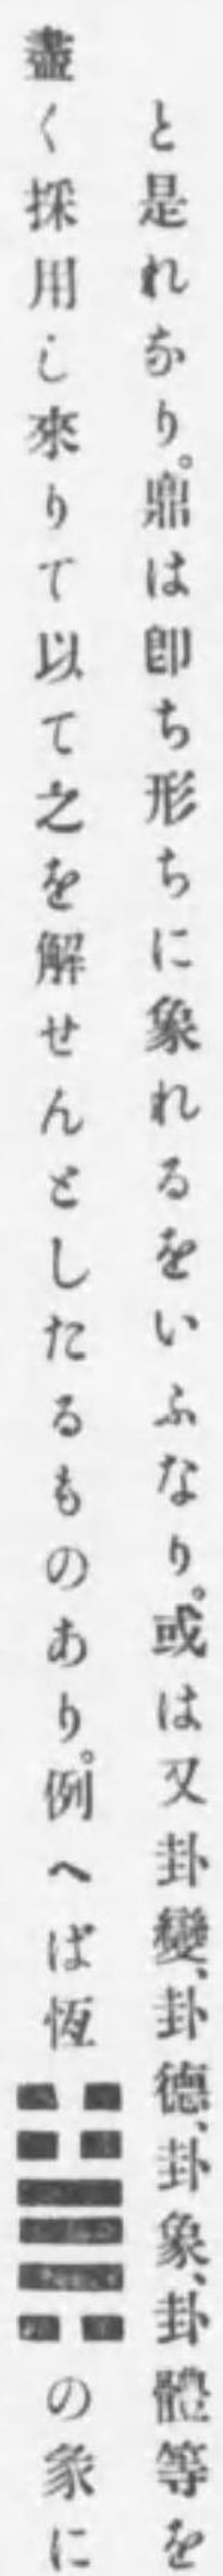 と是れなり。鼎は卽ち形ちに象れるをいふなり。或は又卦變、卦德、卦象、卦體等を
盡く採用し來りて以て之を解せんとしたるものあり。例へば恆䷟の象に